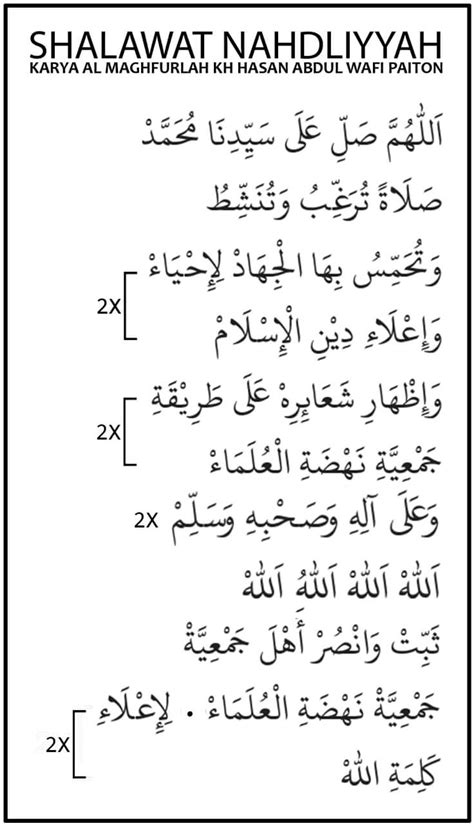 SHALAWAT NAHDLIYYAH
KARYA AL MAGHFURLAH KH HASAN ABDUL WAFI PAITON
اَللّٰهُمَّ صَلِّ عَلَى سَيِّدِنَا مُحَمَّدْ
صَلَاةً تُرَغِّبُ وَتُنَشِّطُ
وَتُحَمِّسُ بِهَا الْجِهَادْ لِإِحْيَاءْ
2X
وَإِعْلَاءِ دِيْنِ الْإِسْلَامْ
وَإِظْهَارِ شَعَائِرِهْ عَلَى طَرِيْقَةِ
2X
جَمْعِيَّةِ نَهْضَةِ الْعُلَمَاءْ
وَعَلَى آلِهِ وَصَحْبِهِ وَسَلِّمْ 2X
اَللّٰهْ اَللّٰهْ اَللّٰهُ اَللّٰهْ
ثَبِّتْ وَانْصُرْ أَهْلَ جَمْعِيَّةْ
جَمْعِيَّةْ نَهْضَةِ الْعُلَمَاءْ . لِإِعْلَاءِ
2X
كَلِمَةِ اللّٰهْ